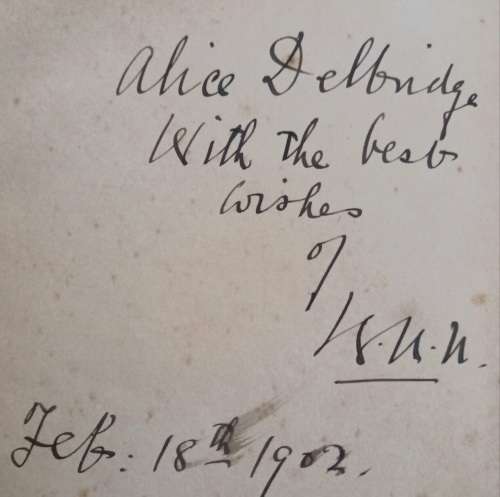 Alice Delbridge
With the best
wishes
of
W.N.N.
Feb: 18th 1902.